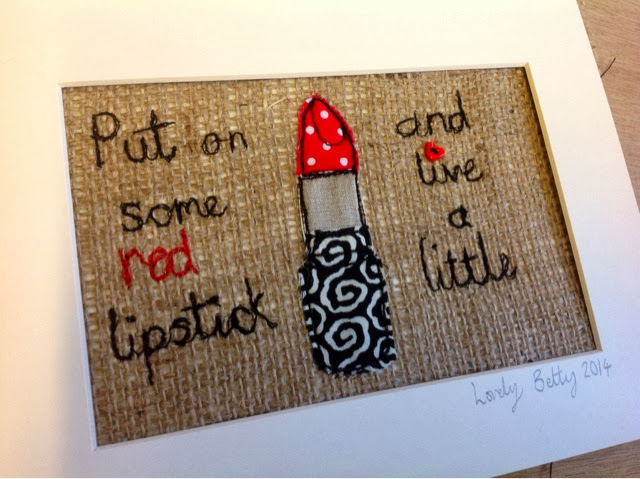 Put on
some
red
lipstick
and
live
a
little
Lovely Betty 2014